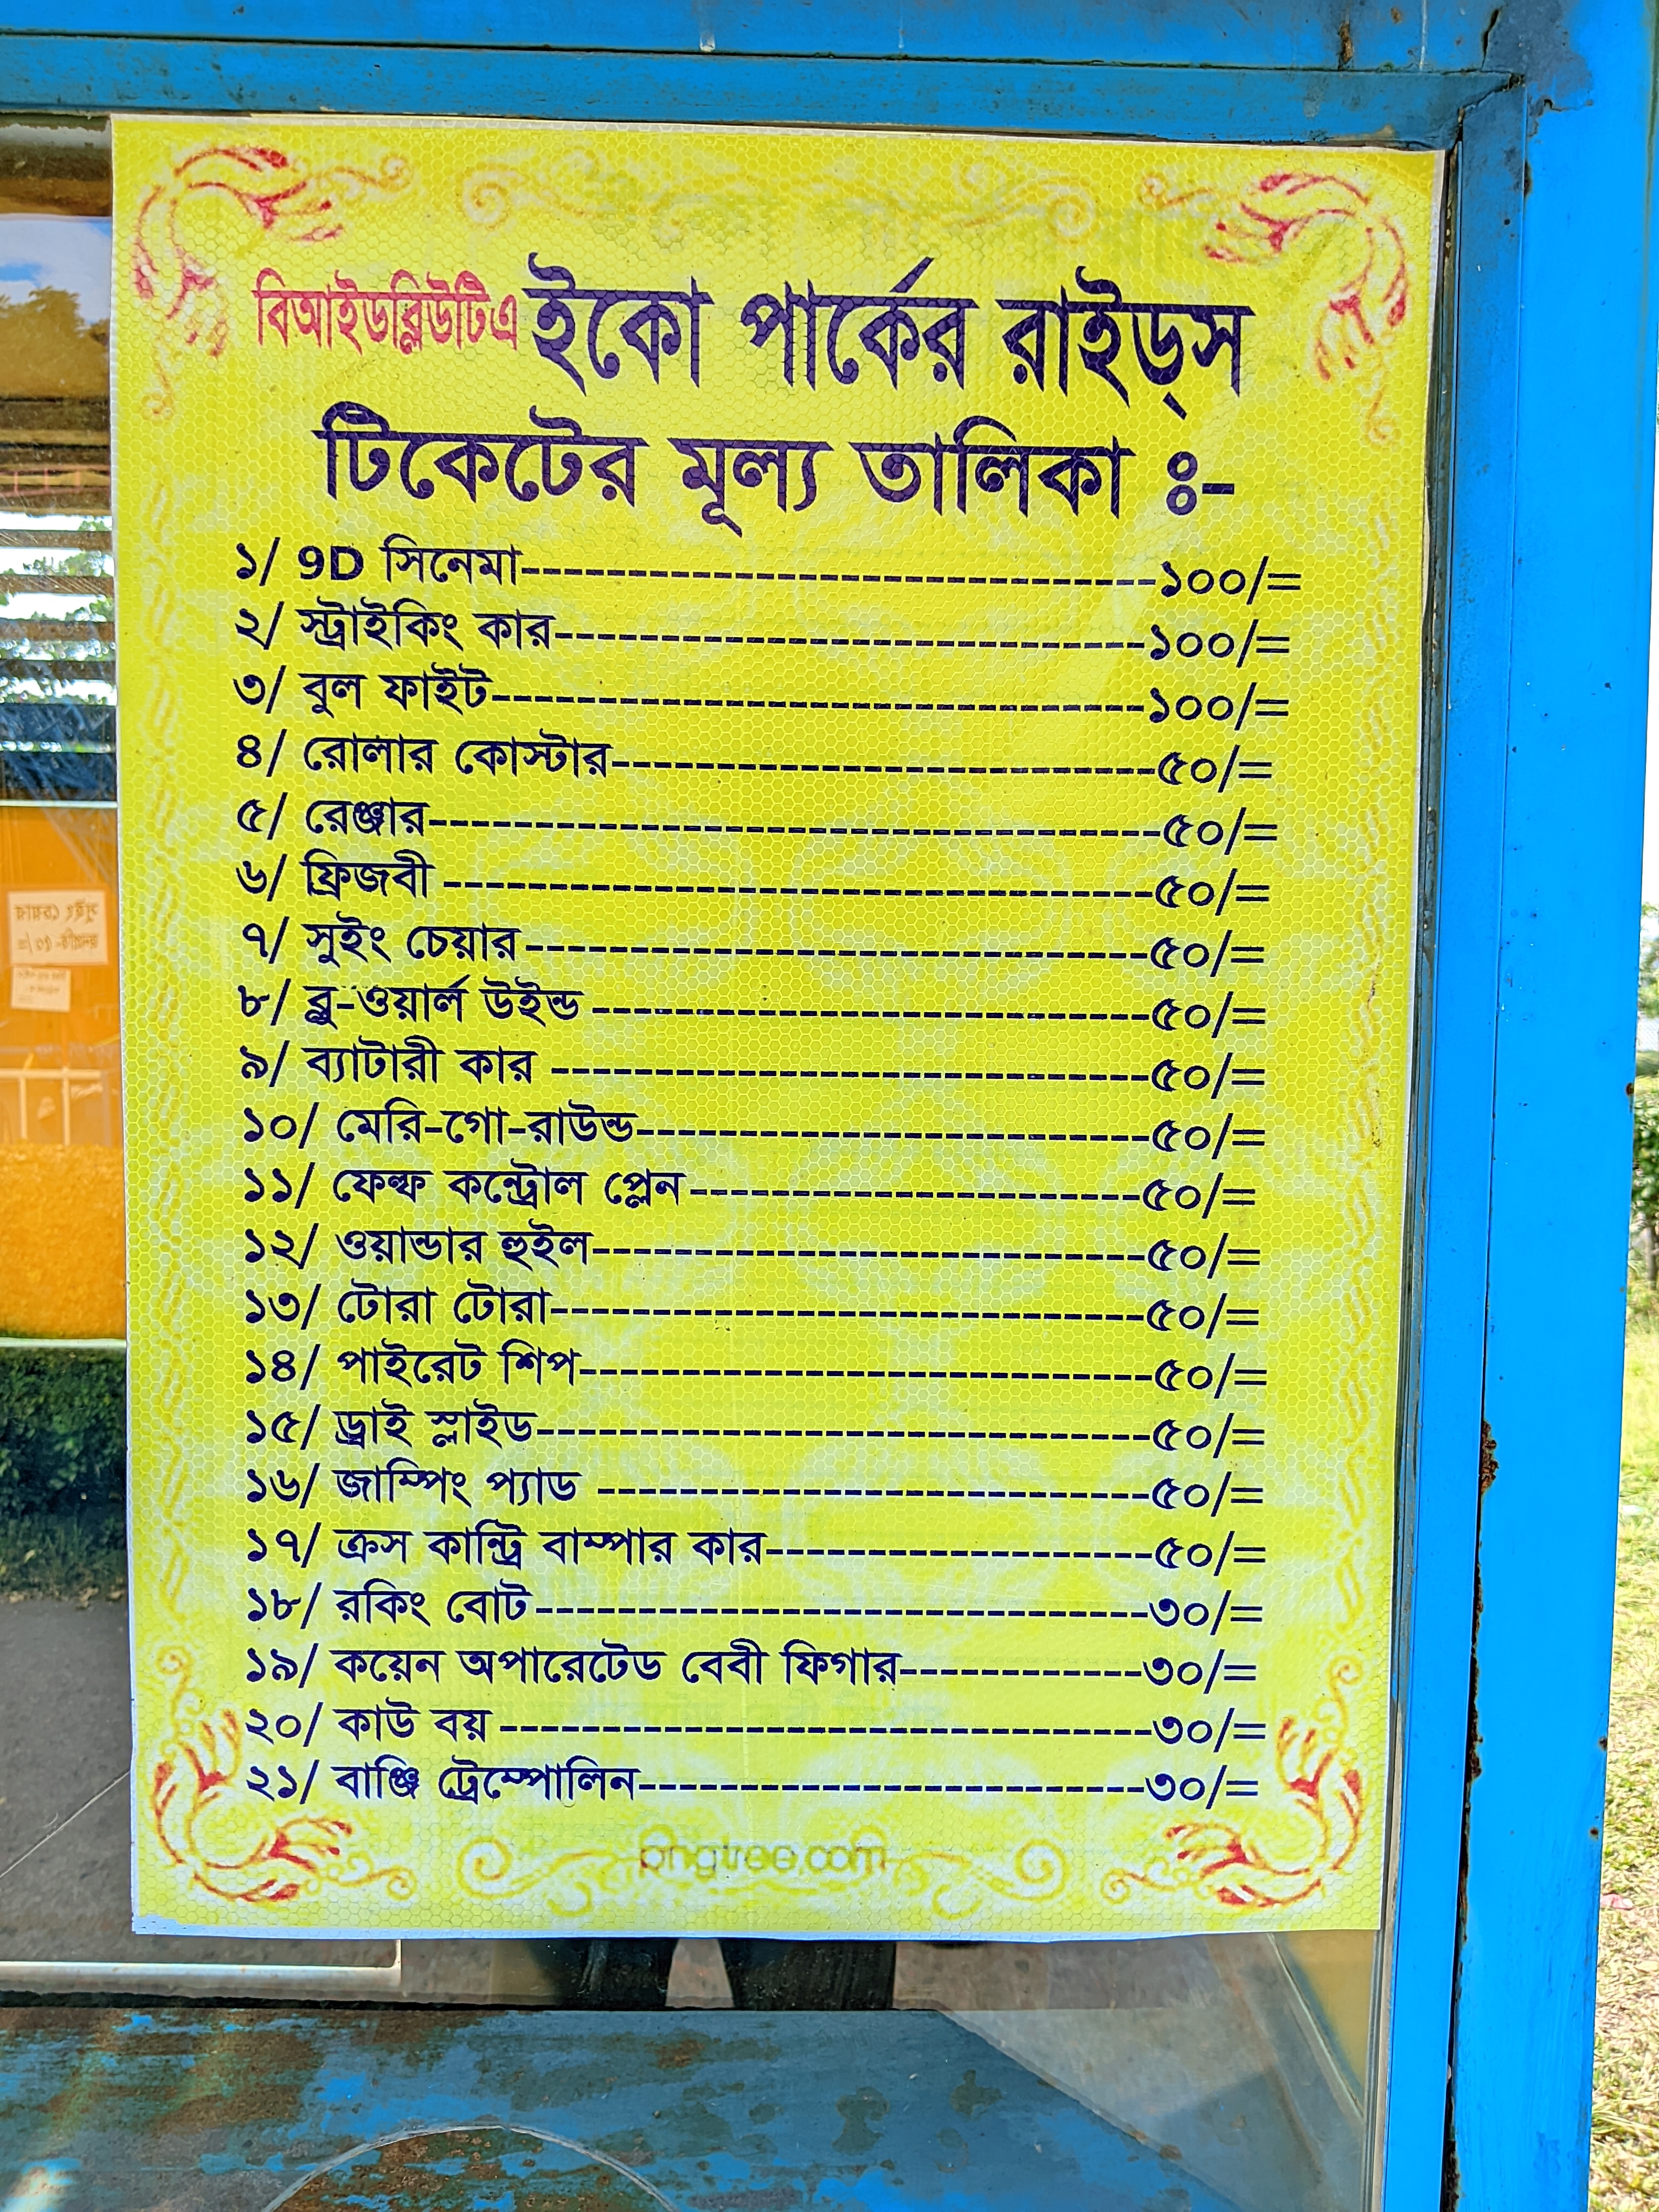 বিআইডব্লিউটিএ ইকো পার্কের রাইড্স
টিকেটের মূল্য তালিকা ঃ-
১/ 9D সিনেমা---------------------------------------------১০০/=
২/ স্ট্রাইকিং কার------------------------------------------১০০/=
৩/ বুল ফাইট----------------------------------------------১০০/=
৪/ রোলার কোস্টার---------------------------------------৫০/=
৫/ রেঞ্জার----------------------------------------------------৫০/=
৬/ ফ্রিজবী --------------------------------------------------৫০/=
৭/ সুইং চেয়ার--------------------------------------------৫০/=
৮/ ব্লু-ওয়ার্ল উইন্ড ---------------------------------------৫০/=
৯/ ব্যাটারী কার ------------------------------------------৫০/=
১০/ মেরি-গো-রাউন্ড------------------------------------৫০/=
১১/ ফেল্ফ কন্ট্রোল প্লেন--------------------------------৫০/=
১২/ ওয়ান্ডার হুইল---------------------------------------৫০/=
১৩/ টোরা টোরা------------------------------------------৫০/=
১৪/ পাইরেট শিপ----------------------------------------৫০/=
১৫/ ড্রাই স্লাইড-------------------------------------------৫০/=
১৬/ জাম্পিং প্যাড ---------------------------------------৫০/=
১৭/ ক্রস কান্ট্রি বাম্পার কার---------------------------৫০/=
১৮/ রকিং বোট-------------------------------------------৩০/=
১৯/ কয়েন অপারেটেড বেবী ফিগার-----------------৩০/=
২০/ কাউ বয় ----------------------------------------------৩০/=
২১/ বাঞ্জি ট্রেম্পোলিন------------------------------------৩০/=
pngtree.com